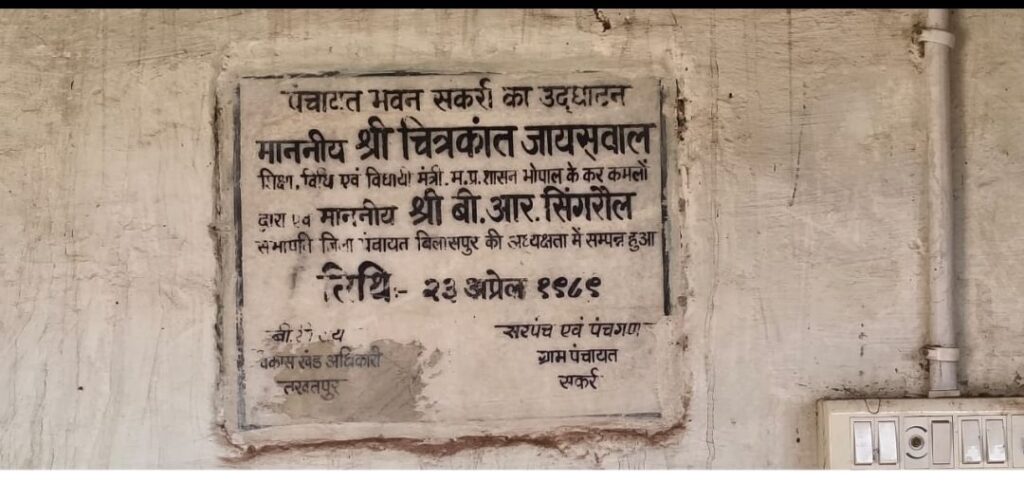 पंचायत भवन सकरी का उद्घाटन
माननीय श्री चित्रकांत जायसवाल
शिक्षा, विधि एवं विधायी मंत्री. म.प्र. शासन भोपाल के कर कमलों
द्वारा एवं माननीय श्री बी. आर. सिंगरौल
सभापति जिला पंचायत बिलासपुर की अध्यक्षता में सम्पन्न हुआ
तिथि:- २३ अप्रेल १९८९
बी.
विकास खंड अधिकारी
तखतपुर
सरपंच एवं पंचगण
ग्राम पंचायत
सकरी